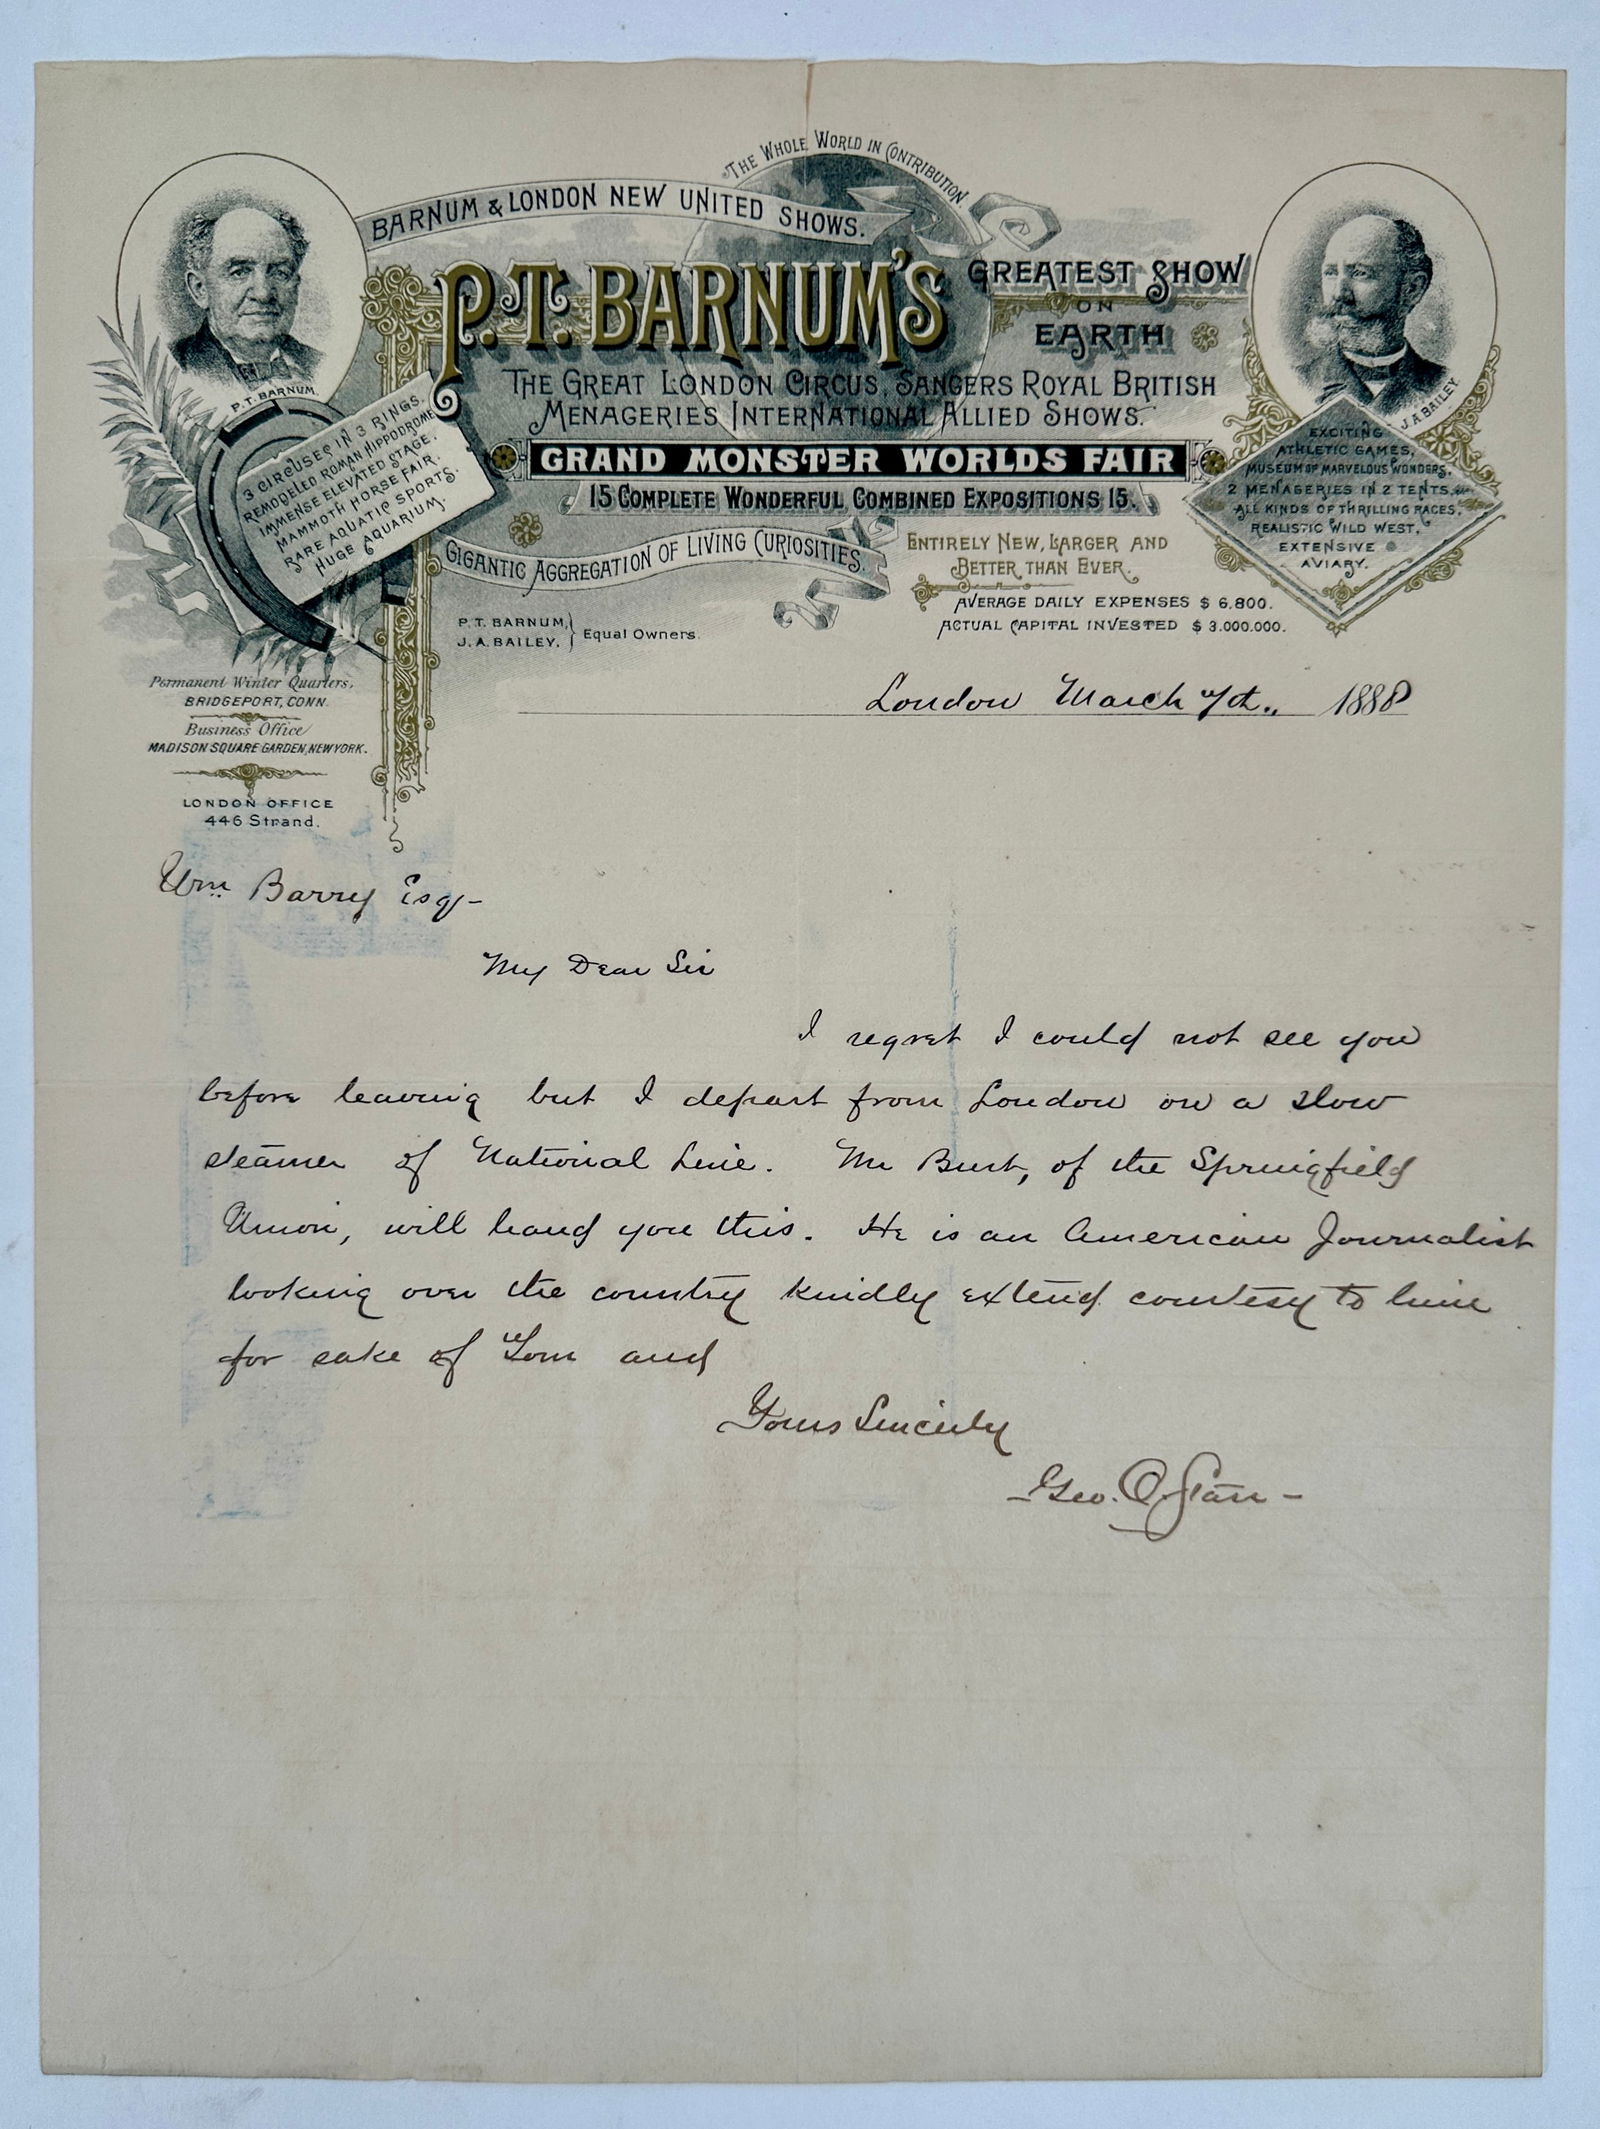 "THE WHOLE WORLD IN CONTRIBUTION.
BARNUM & LONDON NEW UNITED SHOWS.
P.T. BARNUM'S
GREATEST SHOW
ON
EARTH
THE GREAT LONDON CIRCUS, SANGERS ROYAL BRITISH
MENAGERIES INTERNATIONAL ALLIED SHOWS.
GRAND MONSTER WORLDS FAIR
15 COMPLETE WONDERFUL COMBINED EXPOSITIONS 15.
GIGANTIC AGGREGATION OF LIVING CURIOSITIES.
ENTIRELY NEW, LARGER AND
BETTER THAN EVER.
AVERAGE DAILY EXPENSES $ 6.800.
ACTUAL CAPITAL INVESTED $ 3.000.000.
P.T. BARNUM,
J.A. BAILEY. } Equal Owners.
P.T. BARNUM.
3 CIRCUSES IN 3 RINGS.
REMODELED ROMAN HIPPODROME
IMMENSE ELEVATED STAGE.
MAMMOTH HORSE FAIR.
RARE AQUATIC SPORTS.
HUGE AQUARIUM.
J.A. BAILEY.
EXCITING
ATHLETIC GAMES,
MUSEUM OF MARVELOUS WONDERS,
2 MENAGERIES IN 2 TENTS,
ALL KINDS OF THRILLING RACES,
REALISTIC WILD WEST,
EXTENSIVE
AVIARY.
Permanent Winter Quarters,
BRIDGEPORT, CONN.
Business Office
MADISON SQUARE GARDEN, NEW YORK.
LONDON OFFICE
446 Strand.
London March 7th., 1888
Wm Barry Esq-
My Dear Sir
I regret I could not see you
before leaving but I depart from London on a slow
steamer of National Line. Mr Burt, of the Springfield
Union, will hand you this. He is an American Journalist
looking over the country kindly extend courtesy to him
for sake of Tom and
Yours Sincerely
- Geo. O. Starr -